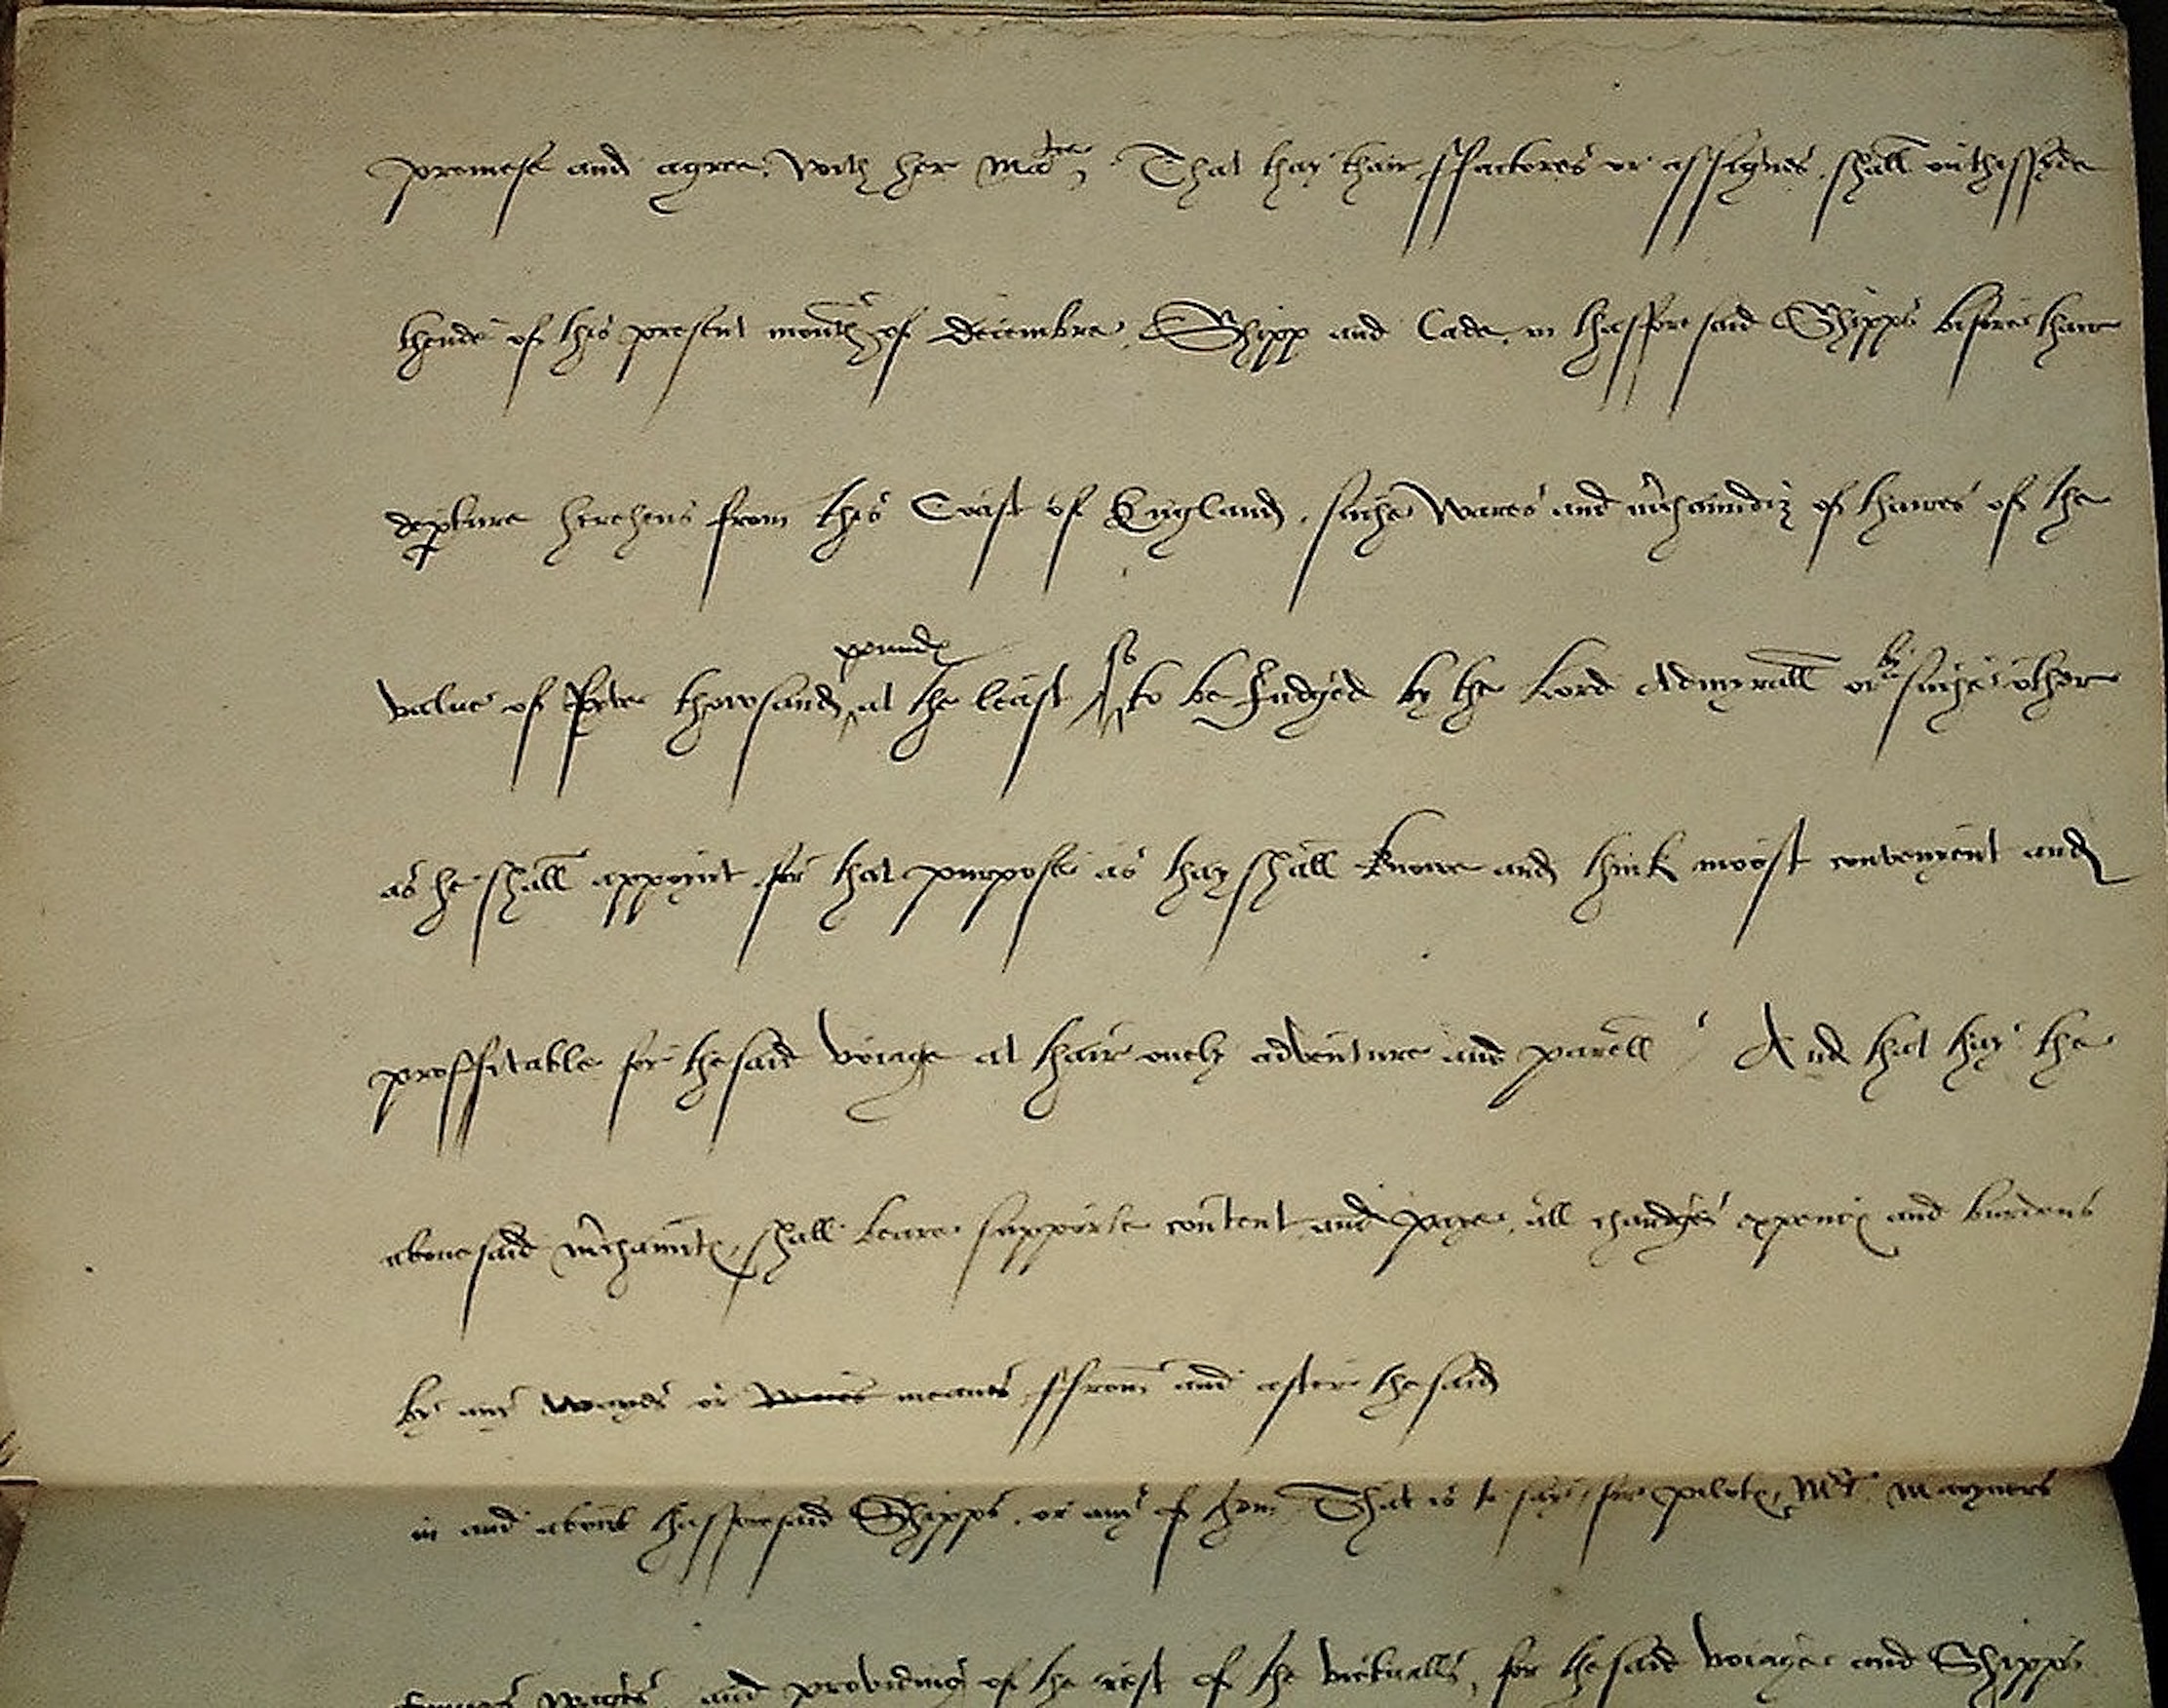 promese and agree, with her Ma^tie. That thay thair ffactores or assignes, shall on thissyde
thende of this present month of decembre, Shipp and lade, in thafforesaid Shipps before thair
depture herehens from this Coast of England, suche wares and mrchaundiz of thaires of the
value of fyve thowsand pounds at the least so to be Judged by the Lord Admyrall or by suche other
as he shall appoynt for that purpose as thay shall knowe and think moost convenyent and
proffitable for thesaid voiage at thair onely adventure and parell / And that thay the
abovesaid mrchaunts, shall beare supporte content and paye, all chardges expencs and burdens
by any wayes or meanes, ffrom and after thesaid
in and about thafforesaid Shipps, or any of them, That is to say, for pilots, Mrs, maryners
wages, and providing of the rest of the victualls, for thesaid voiage and Shipps